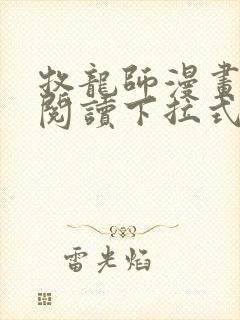 牧龍師漫畫
閱讀下拉式
雷光焰